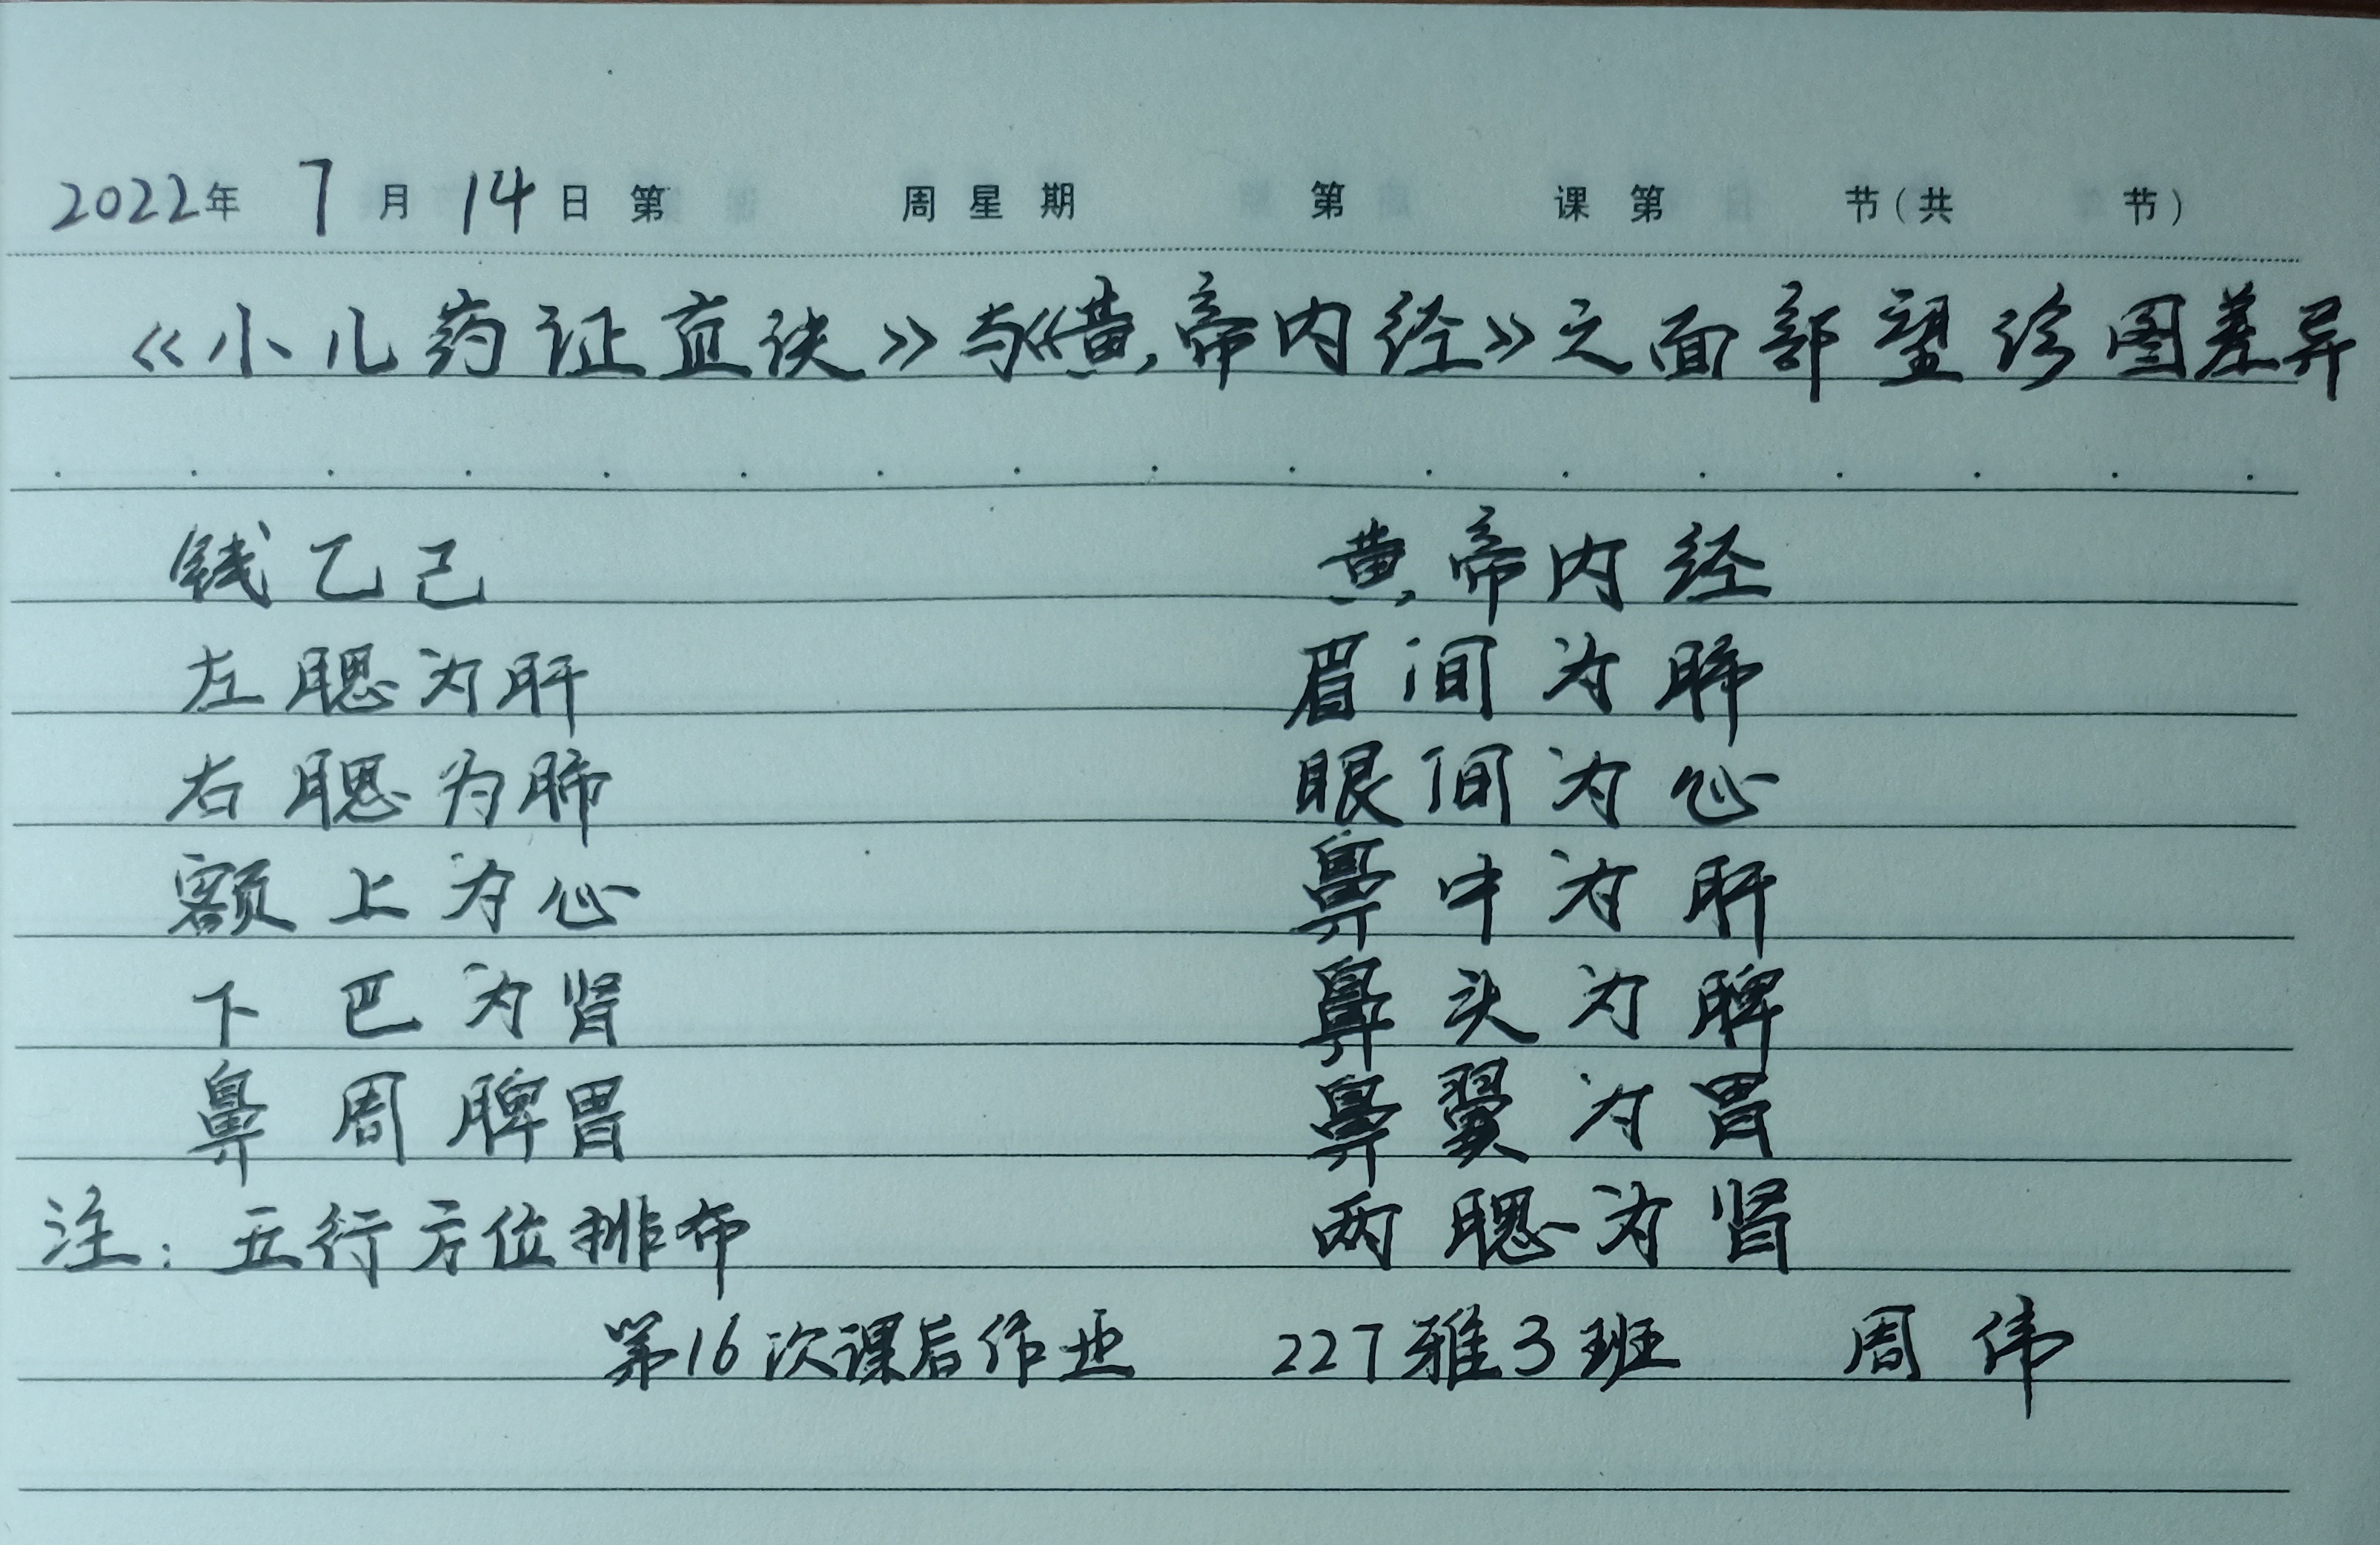 2022年 7月 14日 第 周 星 期 第 课 第 节(共 节)
《小儿药证直诀》与《黄帝内经》之面部望诊图差异
钱乙己 黄帝内经
左腮为肝 眉间为肺
右腮为肺 眼间为心
额上为心 鼻中为肝
下巴为肾 鼻头为脾
鼻周脾胃 鼻翼为胃
注:五行方位排布 两腮为肾
第16次课后作业 227雅3班 周伟